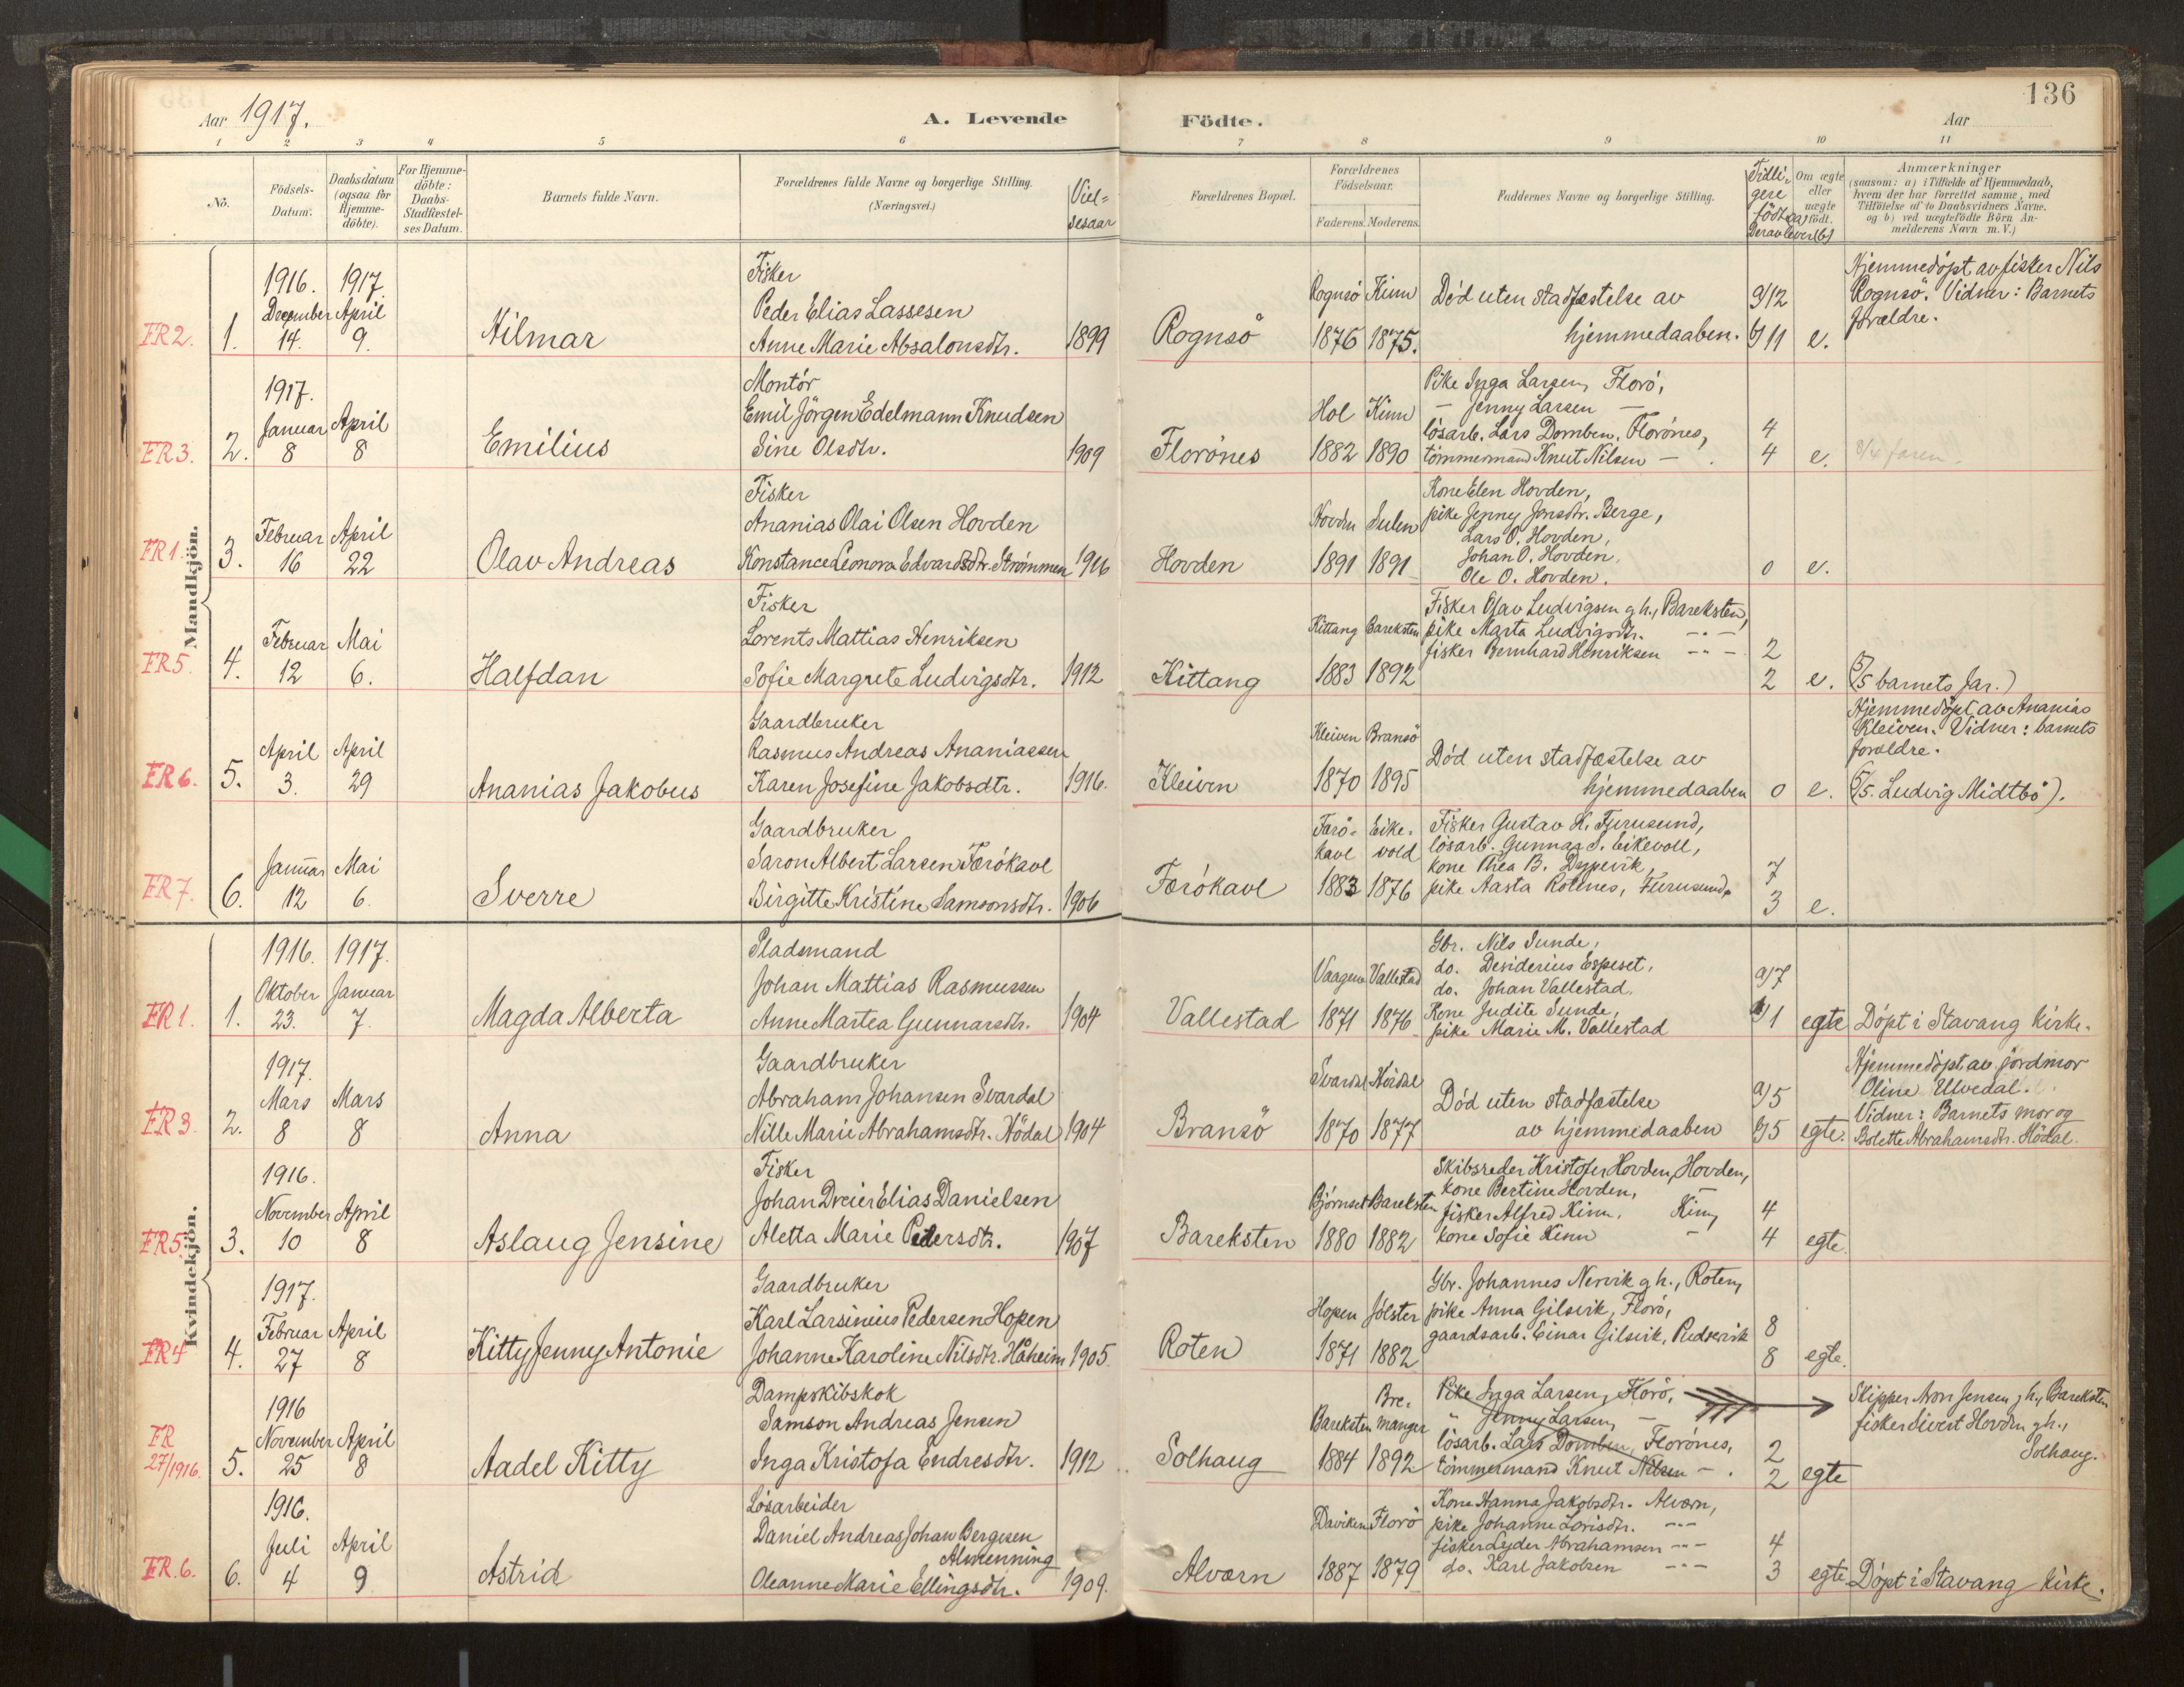 136
Aar 1917.
A. Levende Födte.
Aar
1 2 3 4 5 6 7 8 9 10 11
No.
Födsels-Datum.
Daabsdatum (ogsaa for Hjemme-döbte).
For Hjemme-döbte: Daabs-Stadfæstel-ses Datum.
Barnets fulde Navn.
Forældrenes fulde Navne og borgerlige Stilling. (Næringsvei.)
Viel-sesaar
Forældrenes Bopæl.
Forældrenes Födselsaar.
Faderens. Moderens.
Faddernes Navne og borgerlige Stilling.
Tidli-gere födt (a) Derav lever (b)
Om ægte eller uægte födt.
Anmærkninger
(saasom: a) i Tilfælde af Hjemmedaab, hvem der har forrettet samme, med Tilföielse af to Daabsvidners Navne, og b) ved uægtefödte Börn An-melderens Navn m. V.)
Mandkjön.
FR 2. 1.
1916. December 14.
1917 April 9.
Hilmar
Fisker
Peder Elias Lassesen
Anne Marie Absalonsdtr. 1899
Rognsö
Rognsö 1876
Kinn 1875.
Död uten stadfæstelse av
hjemmedaaben.
a/12
b/11 e.
Hjemmedöpt av fisker Nils
Rognsö. Vidner: Barnets
forældre.
FR 3. 2.
1917. Januar 8
April 8
Emilius
Montör
Emil Jörgen Edelmann Knudsen
Sine Olsdtr. 1909
Florönes
Hol 1882
Kinn 1890
Pike Inga Larsen, Florö,
— Jenny Larsen —
lösarb. Lars Domben, Florönes,
tömmermand Knut Nilsen — .
4
4 e.
FR 1. 3.
Februar 16
April 22
Olav Andreas
Fisker
Ananias Olai Olsen Hovden
Konstance Leonora Edvardsdtr. Strömmen 1916
Hovden
Hovden 1891
Sulen 1891
Kone Elen Hovden,
pike Jenny Jonsdtr. Berge,
Lars O. Hovden,
Johan O. Hovden,
Ole O. Hovden.
0 e.
FR 5. 4.
Februar 12
Mai 6.
Halfdan
Fisker
Lorents Mattias Henriksen
Sofie Margrete Ludvigsdtr. 1912
Kittang
Kittang 1883
Bareksten 1892
Fisker Olav Ludvigsen gh., Bareksten,
pike Marta Ludvigsdtr. — " —
fisker Bernhard Henriksen — " —
2
2 e.
(5/5 barnets far.)
FR 6. 5.
April 3.
April 29
Ananias Jakobus
Gaardbruker
Rasmus Andreas Ananiassen
Karen Josefine Jakobsdtr. 1916.
Kleiven
Kleiven 1870
Bransö 1895
Död uten stadfæstelse av
hjemmedaaben
0 e.
Hjemmedöpt av Ananias
Kleiven. Vidner: barnets
forældre.
(5/5. Ludvig Midtbö).
FR 7. 6.
Januar 12
Mai 6.
Sverre
Gaardbruker
Saron Albert Larsen Færökavl
Birgitte Kristine Samsonsdtr. 1906
Færökavl
Færö-kavl 1883
Eike-vold 1876
Fisker Gustav H. Furusund,
lösarb. Gunnar S. Eikevoll,
kone Thea B. Dypevik,
pike Aasta Rotenes, Furusund.
7
3 e.
Kvindekjön.
FR 1. 1.
1916. Oktober 23.
1917. Januar 7.
Magda Alberta
Pladsmand
Johan Mattias Rasmussen
Anne Martea Gunnarsdtr. 1904
Vallestad
Vaagene 1871
Vallestad 1876
Gbr. Nils Sunde,
do. Desiderius Espeset,
do. Johan Vallestad,
Kone Judite Sunde,
pike Marie M. Vallestad
a/7
b/1 egte
Döpt i Stavang kirke.
FR 3. 2.
1917. Mars 8
Mars 8
Anna
Gaardbruker
Abraham Johansen Svardal
Nille Marie Abrahamsdtr. Hödal 1904
Bransö
Svardal 1870
Hödal 1877
Död uten stadfæstelse
av hjemmedaaben
a/5
b/5 egte.
Hjemmedöpt av jordmor
Oline Ulvedal.
Vidner: Barnets mor og
Bolette Abrahamsdtr. Hödal.
FR 5. 3.
1916. November 10
April 8
Aslaug Jensine
Fisker
Johan Dreier Elias Danielsen
Aletta Marie Pedersdtr. 1907
Bareksten
Björnset 1880
Bareksten 1882
Skibsreder Kristofer Hovden, Hovden,
kone Bertine Hovden, —
fisker Alfred Kinn, Kinn,
kone Sofie Kinn —
4
4 egte.
FR 4 4.
1917. Februar 27
April 8
Kitty Jenny Antonie
Gaardbruker
Karl Larsinius Pedersen Hopen
Johanne Karoline Nilsdtr. Håheim 1905.
Roten
Hopen 1871
Jölster 1882
Gbr. Johannes Nervik gh., Roten,
pike Anna Gilsvik, Florö,
gaardsarb. Einar Gilsvik, Pudrevik
8
8 egte.
FR 27/1916. 5.
1916 November 25
April 8
Aadel Kitty
Dampskibskok
Samson Andreas Jensen
Inga Kristofa Endresdtr. 1912
Solhaug
Bareksten 1884
Bre-manger 1892
Pike Inga Larsen, Florö,
" Jenny Larsen, —
lösarb. Lars Domben, Florönes,
tömmermand Knut Nilsen — .
2
2 egte
Skipper Aron Jensen gh., Bareksten
fisker Sivert Hovden gh.,
Solhaug.
FR. 6. 6.
1916. Juli 4
April 9
Astrid
Lösarbeider
Daniel Andreas Johan Bergesen
Almenning
Oleanne Marie Ellingsdtr. 1909.
Alværn
Daviken 1887
Florö 1879
Kone Hanna Jakobsdtr. Alværn,
pike Johanne Lovisdtr. — " —
fisker Lyder Abrahamsen — " —
do. Karl Jakobsen — " —
4
3 egte
Döpt i Stavang kirke.